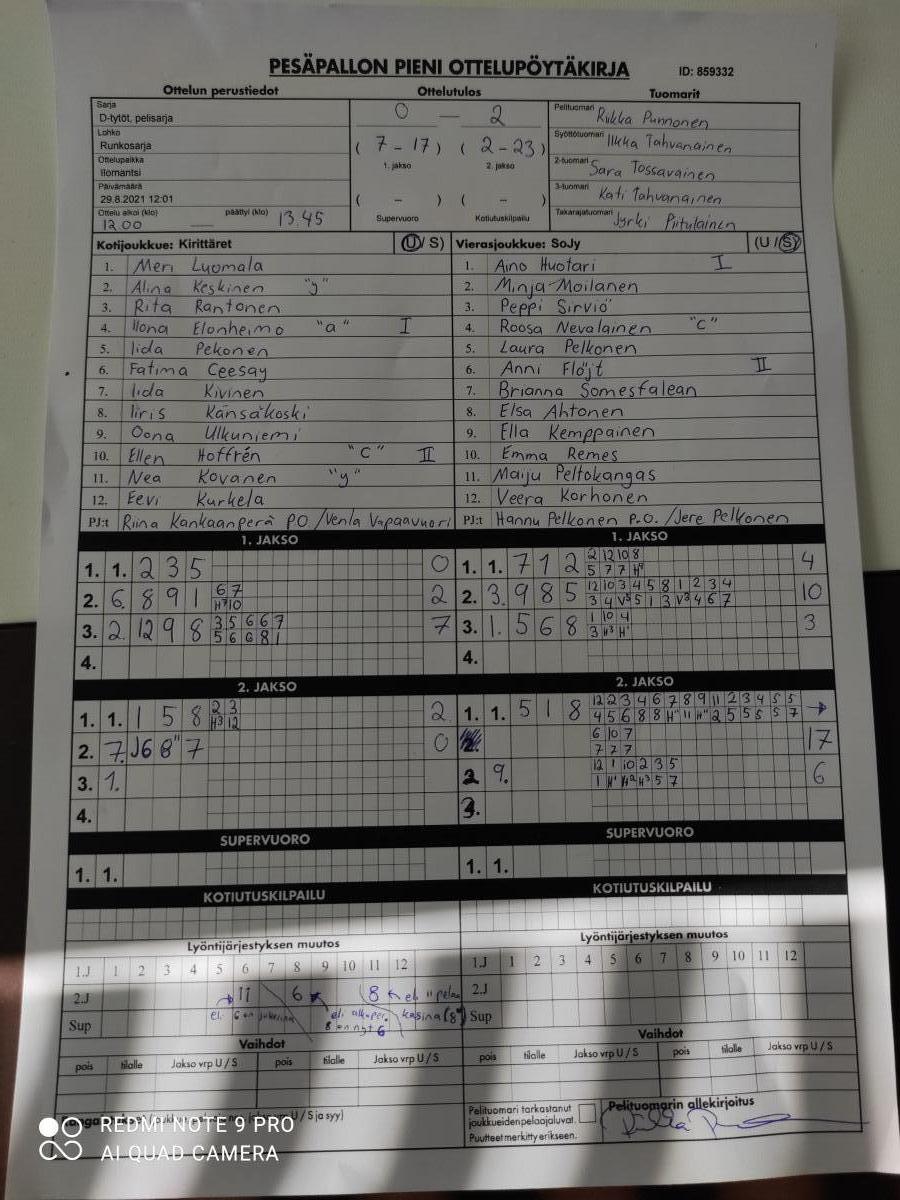 PESÄPALLON PIENI OTTELUPÖYTÄKIRJA ID: 859332
Ottelun perustiedot Ottelutulos Tuomarit
Sarja
D-tytöt, pelisarja
Lohko
Runkosarja
Ottelupaikka
Ilomantsi
Päivämäärä
29.8.2021 12:01
Ottelu alkoi (klo) 12.00 päättyi (klo) 13.45
0 — 2
( 7 - 17 ) ( 2 - 23 )
1. jakso 2. jakso
( - ) ( - )
Supervuoro Kotiutuskilpailu
Pelituomari Riikka Punnonen
Syöttötuomari Ilkka Tahvanainen
2-tuomari Sara Tossavainen
3-tuomari Kati Tahvanainen
Takarajatuomari Jyrki Piitulainen
Kotijoukkue: Kirittäret (U / S)
1. Meri Luomala
2. Alina Keskinen "y"
3. Rita Rantonen
4. Ilona Elonheimo "a" I
5. Iida Pekonen
6. Fatima Ceesay
7. Iida Kivinen
8. Iiris Känsäkoski
9. Oona Ulkuniemi
10. Ellen Hoffrén "C" II
11. Nea Kovanen "y"
12. Eevi Kurkela
PJ:t Riina Kankaanperä PO / Venla Vapaavuori
Vierasjoukkue: SoJy (U / S)
1. Aino Huotari I
2. Minja Moilanen
3. Peppi Sirviö
4. Roosa Nevalainen "C"
5. Laura Pelkonen
6. Anni Flöjt II
7. Brianna Somesfalean
8. Elsa Ahtonen
9. Ella Kemppainen
10. Emma Remes
11. Maiju Peltokangas
12. Veera Korhonen
PJ:t Hannu Pelkonen P.O. / Jere Pelkonen
1. JAKSO
1. 1. 2 3 5 0
2. 6. 8 9 1 6 7 2
H³ 10
3. 2. 12 9 8 3 5 6 6 7 7
5 6 6 8 1
4.
1. JAKSO
1. 1. 7 1 2 2 12 10 8 4
5 7 7 H⁴
2. 3. 9 8 5 12 10 3 4 5 8 1 2 3 4 10
3 4 V⁵ 5 1 3 V³ 4 6 7
3. 1. 5 6 8 1 10 4 3
3 H³ H'
4.
2. JAKSO
1. 1. 1 5 8 2 3 2
H³ 12
2. 7. J6 8" 7 0
3. 1.
4.
2. JAKSO
1. 1. 5 1 8 12 2 3 4 6 7 8 9 11 2 3 4 5 5 →
4 5 6 8 8 H" 11 H" 2 5 5 5 5 7
6 10 7 17
7 7 7
2 9. 12 1 10 2 3 5 6
1 H' H² H³ 5 7
3.
SUPERVUORO
1. 1.
SUPERVUORO
1. 1.
KOTIUTUSKILPAILU
KOTIUTUSKILPAILU
Lyöntijärjestyksen muutos
1.J 1 2 3 4 5 6 7 8 9 10 11 12
2.J → 11 6 8 ← el. 11 pelaa
Sup el. 6 on jokerina el. alkuper. kasina (8")
8 on nyt 6
Lyöntijärjestyksen muutos
1.J 1 2 3 4 5 6 7 8 9 10 11 12
2.J
Sup
Vaihdot
pois tilalle Jakso vrp U / S pois tilalle Jakso vrp U / S
Vaihdot
pois tilalle Jakso vrp U / S pois tilalle Jakso vrp U / S
U / S ja syy)
Pelituomari tarkastanut
joukkueiden pelaajaluvat.
Puutteet merkitty erikseen.
Pelituomarin allekirjoitus
REDMI NOTE 9 PRO
AI QUAD CAMERA